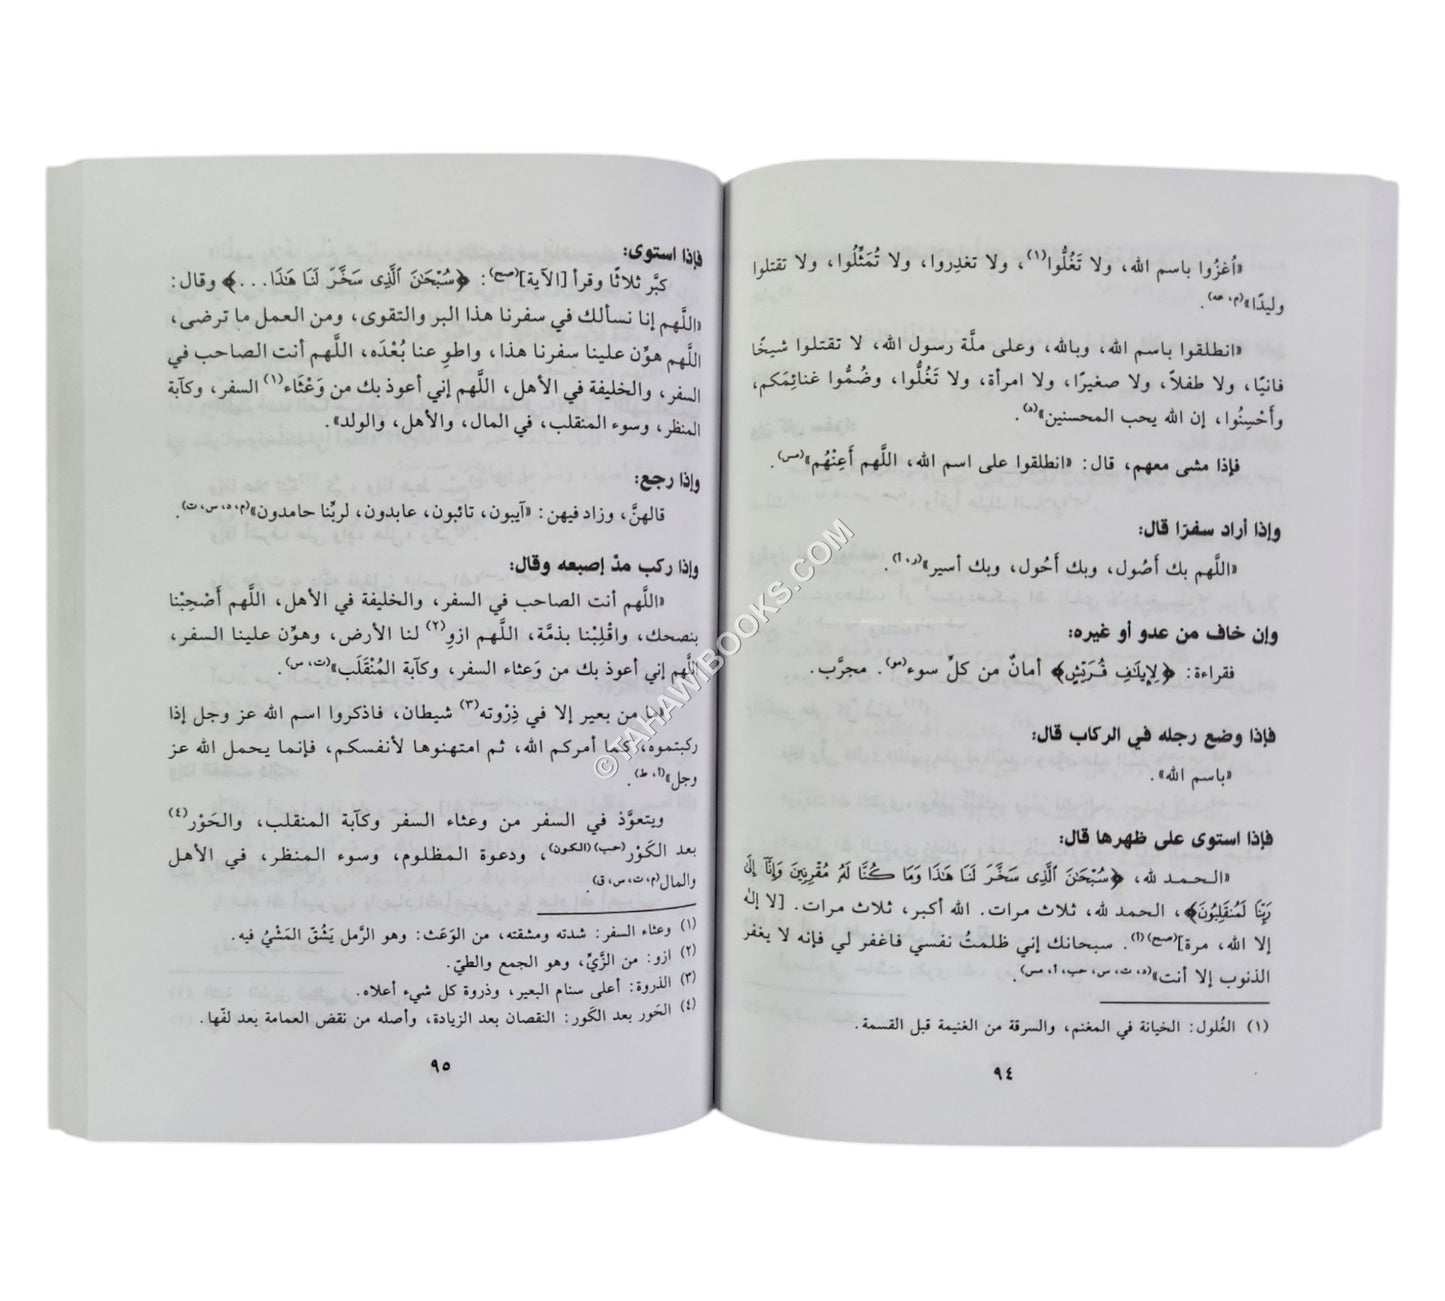 «اُغزُوا باسم الله، ولا تَغُلُّوا(١)، ولا تغدِروا، ولا تُمَثِّلُوا، ولا تقتلوا
وليدًا»(م، عه).
«انطلقوا باسم الله، وبالله، وعلى ملَّة رسول الله، لا تقتلوا شيخًا
فانيًا، ولا طفلاً، ولا صغيرًا، ولا امرأة، ولا تَغُلُّوا، وضُمُّوا غنائِمَكم،
وأَحْسِنُوا، إن الله يحب المحسنين»(د).
فإذا مشى معهم، قال: «انطلقوا على اسم الله، اللَّهم أَعِنْهُم»(مس).
وإذا أراد سفرًا قال:
«اللَّهم بك أَصُول، وبك أَحُول، وبك أسير»(ر، أ).
وإن خاف من عدو أو غيره:
فقراءة: ﴿لِإِيلَـٰفِ قُرَيْشٍ﴾ أمانٌ من كلِّ سوء(مو). مجرَّب.
فإذا وضع رجله في الركاب قال:
«باسم الله».
فإذا استوى على ظهرها قال:
«الحمد لله، ﴿سُبْحَـٰنَ ٱلَّذِى سَخَّرَ لَنَا هَـٰذَا وَمَا كُنَّا لَهُۥ مُقْرِنِينَ وَإِنَّآ إِلَىٰ
رَبِّنَا لَمُنقَلِبُونَ﴾، الحمد لله، ثلاث مرات. الله أكبر، ثلاث مرات. [لا إله
إلا الله، مرة](صح)(أ). سبحانك إني ظلمتُ نفسي فاغفر لي فإنه لا يغفر
الذنوب إلا أنت»(د، ت، س، حب، أ، مس).
(١) الغُلول: الخيانة في المغنم، والسرقة من الغنيمة قبل القسمة.
٩٤
فإذا استوى:
كبَّر ثلاثًا وقرأ [الآية](صح): ﴿سُبْحَـٰنَ ٱلَّذِى سَخَّرَ لَنَا هَـٰذَا...﴾ وقال:
«اللَّهم إنا نسألك في سفرنا هذا البر والتقوى، ومن العمل ما ترضى،
اللَّهم هوِّن علينا سفرنا هذا، واطوِ عنا بُعْدَه، اللَّهم أنت الصاحب في
السفر، والخليفة في الأهل، اللَّهم إني أعوذ بك من وَعْثَاء(١) السفر، وكآبة
المنظر، وسوء المنقلب، في المال، والأهل، والولد».
وإذا رجع:
قالهنَّ، وزاد فيهن: «آيبون، تائبون، عابدون، لربِّنا حامدون»(م، د، س، ت).
وإذا ركب مدّ إصبعه وقال:
«اللَّهم أنت الصاحب في السفر، والخليفة في الأهل، اللَّهم أَصْحِبْنا
بنصحك، واقْلِبْنا بذمَّة، اللَّهم ازوِ(٢) لنا الأرض، وهوِّن علينا السفر،
اللَّهم إني أعوذ بك من وَعثاء السفر، وكآبة المُنْقَلَب»(ت، س).
«ما من بعير إلا في ذِرْوته(٣) شيطان، فاذكروا اسم الله عز وجل إذا
ركبتموه، كما أمركم الله، ثم امتهنوها لأنفسكم، فإنما يحمل الله عز
وجل»(أ، ط).
ويتعوَّذ في السفر من وعثاء السفر وكآبة المنقلب، والحَوْر(٤)
بعد الكَوْر(حب)(الكون)، ودعوة المظلوم، وسوء المنظر، في الأهل
والمال(م، ت، س، ق).
(١) وعثاء السفر: شدته ومشقته، من الوَعَث: وهو الرَّمل يَشُقّ المَشْيُ فيه.
(٢) ازو: من الزَّيِّ، وهو الجمع والطيّ.
(٣) الذروة: أعلى سنام البعير، وذروة كل شيء أعلاه.
(٤) الحَور بعد الكَور: النقصان بعد الزيادة، وأصله من نقض العمامة بعد لفّها.
٩٥
©TAHAWIBOOKS.COM